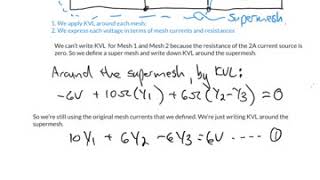 Supermesh
1. We apply KVL around each mesh.
2. We express each voltage in terms of mesh currents and resistances
We can't write KVL for Mesh 1 and Mesh 2 because the resistance of the 2A current source is
zero. So we define a super mesh and write down KVL around the supermesh.
Around the supermesh, by KVL:
-6V + 10Ω(Y₁) + 6Ω(Y₂-Y₃) = 0
So we're still using the original mesh currents that we defined. We're just writing KVL around the
supermesh.
10Y₁ + 6Y₂ - 6Y₃ = 6V ---- ①